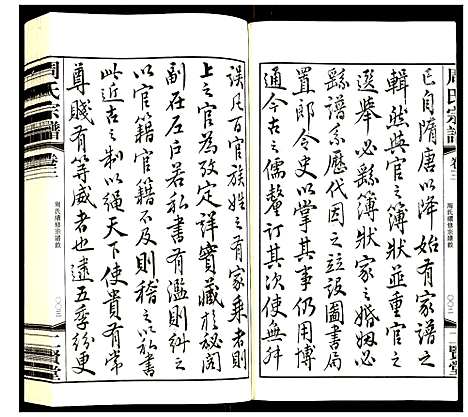 周氏宗譜
卷三
周氏續修宗譜敘
〇〇二
二賢堂
已自隋唐以降始有家譜之
輯然與官之簿狀並重官之
選舉必繇簿狀家之婚姻必
繇譜系歷代因之竝設圖書局
置郎令史以掌其事仍用博
通今古之儒釐訂其次使無舛
誤凡百官族姓之有家乘者則
上之官爲攷定詳實藏於秘閣
副在左戶若私書有濫則糾之
以官籍官籍不及則稽之以私書
此近古之制以繩天下使貴有常
尊賤有等威者也逮五季紛更
周氏宗譜
卷三
周氏續修宗譜敘
〇〇三
二賢堂